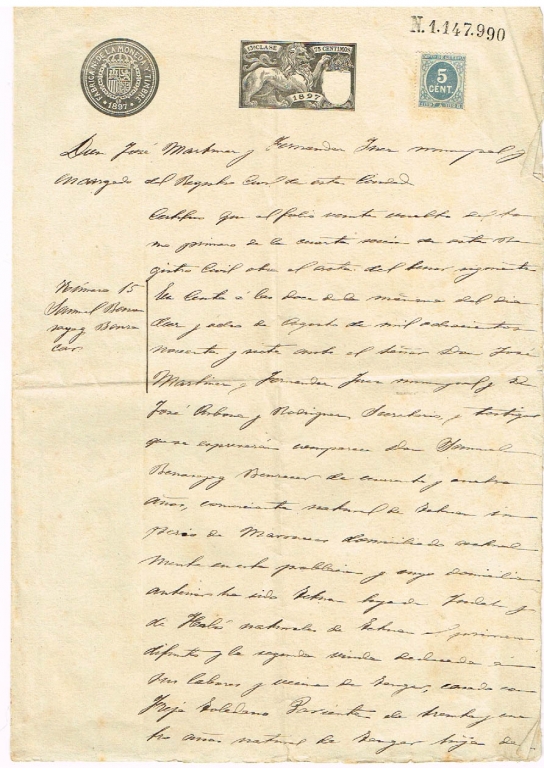 N. 1.147.990
FABRICA N. DE LA MONEDA Y TIMBRE
1897
13ª CLASE 75 CENTIMOS
1897
5
CENT.
Don José Martinez y Fernandez Juez municipal y
encargado del Registro Civil de esta Ciudad
Certifico que al folio veinte vuelto del to
mo primero de la cuarta sección de este Re
gistro Civil obra el acta del tenor siguiente
Número 15
Samuel Benza
y Benza
En Ceuta á las doce de la mañana del dia
diez y ocho de Agosto de mil ochocientos
noventa y siete ante el Señor Don José
Martinez y Fernandez Juez municipal y Dn
José y Rodriguez, Secretario, y testigos
que se expresarán comparece Don Samuel
de cuarenta y cuatro
años, comerciante natural de Tetuan im
perio de Marruecos domiciliado actual
mente en esta poblacion y cuyo domicilio
anterior ha sido Tetuan hijo de y
de naturales de Tetuan el primero
difunto y la segunda viuda dedicada á
sus labores y vecina de Tanger, casado con
Toledano Pariente de treinta y cua
tro años natural de Tanger hija de